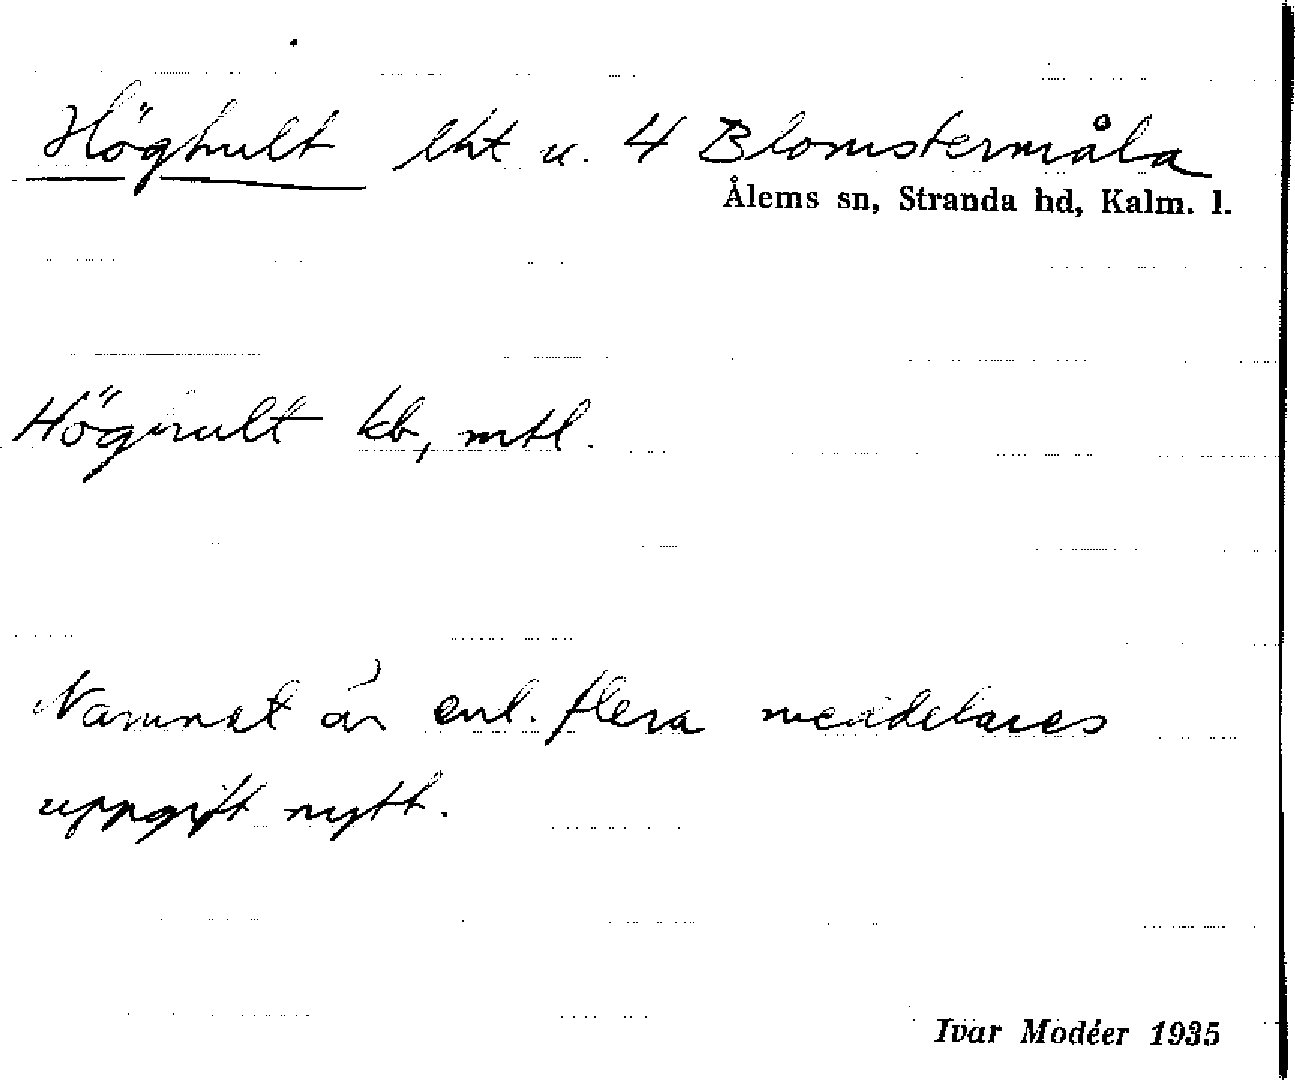 Höghult lht u. 4 Blomstermåla
Ålems sn, Stranda hd, Kalm. l.
Höghult kb, mtl.
Namnet är enl. flera meddelares
uppgift nytt.
Ivar Modéer 1935